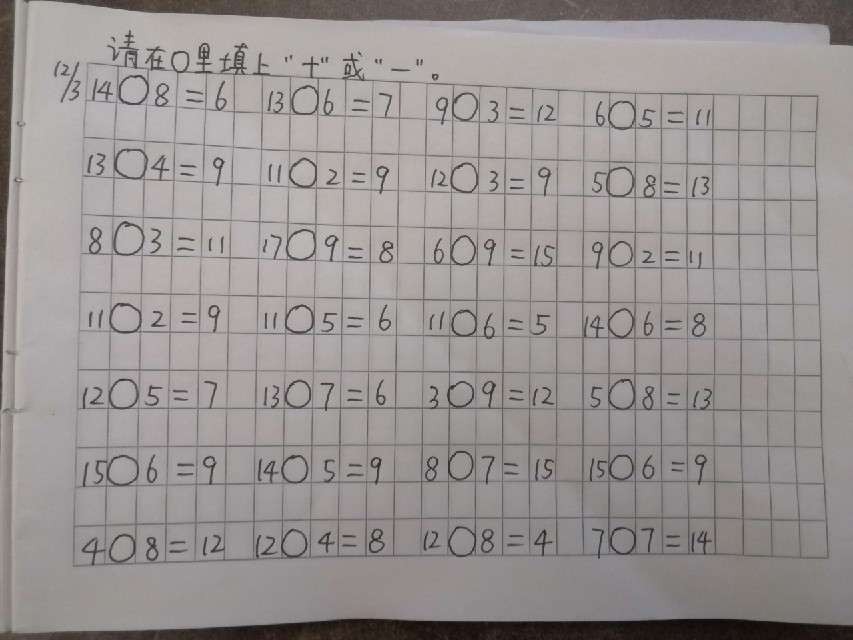 请在○里填上"+"或"-"。
12/3
14○8=6 13○6=7 9○3=12 6○5=11
13○4=9 11○2=9 12○3=9 5○8=13
8○3=11 17○9=8 6○9=15 9○2=11
11○2=9 11○5=6 11○6=5 14○6=8
12○5=7 13○7=6 3○9=12 5○8=13
15○6=9 14○5=9 8○7=15 15○6=9
4○8=12 12○4=8 12○8=4 7○7=14